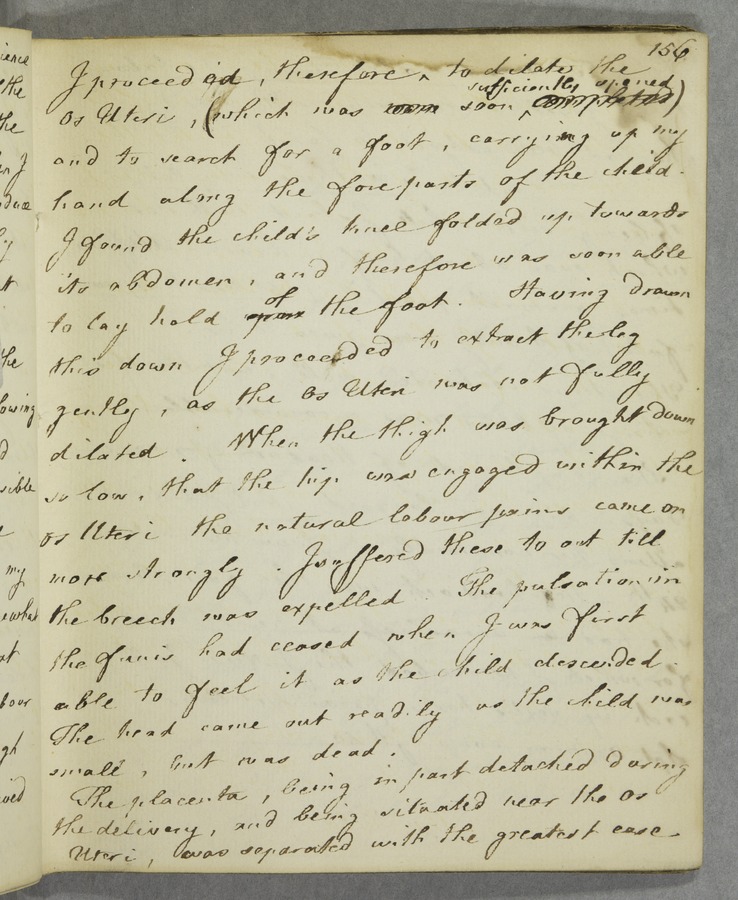 ience
the
the
my
156
I proceeded, therefore, to dilate the
sufficiently opened
Os Uteri, (which was soon soon completed)
and to search for a foot, carrying up my
hand along the fore parts of the child.
I found the child's knee folded up towards
its abdomen, and therefore was soon able
of
to lay hold upon the foot. Having drawn
this down I proceeded to extract the leg
gently, as the Os Uteri was not fully
dilated. When the thigh was brought down
so low, that the hip was engaged within the
os Uteri the natural labour pains came on
more strongly. I suffered these to act till
the breech was expelled. The pulsation in
the funis had ceased when I was first
able to feel it as the child descended.
The head came out readily as the child was
small, but was dead.
The placenta, being in part detached during
the delivery, and being situated near the os
Uteri, was separated with the greatest ease